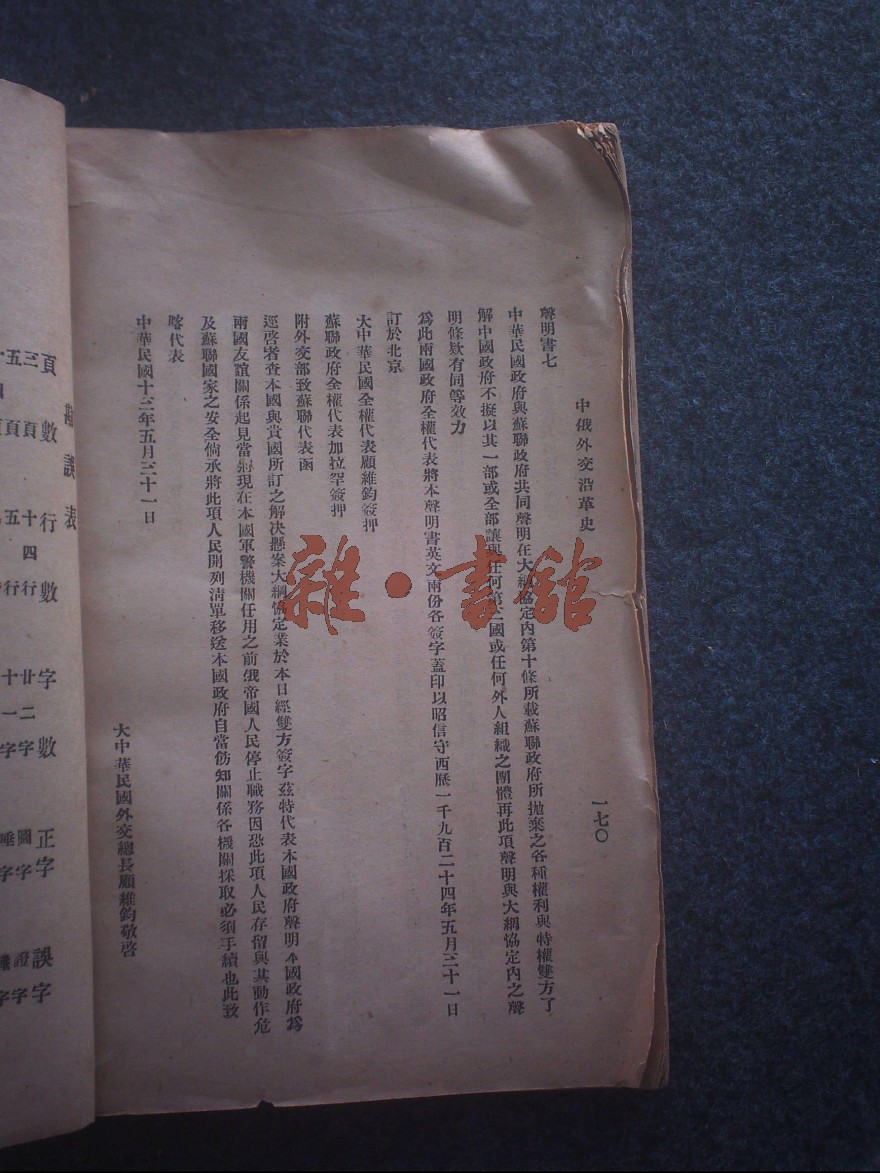 中俄外交沿革史
一七〇
聲明書七
中華民國政府與蘇聯政府共同聲明在大綱協定內第十條所載蘇聯政府所拋棄之各種權利與特權雙方了
解中國政府不擬以其一部或全部讓與任何第三國或任何外人組織之團體再此項聲明與大綱協定內之聲
明條欵有同等效力
爲此兩國政府全權代表將本聲明書英文兩份各簽字蓋印以昭信守西歷一千九百二十四年五月三十一日
訂於北京
大中華民國全權代表顧維鈞簽押
蘇聯政府全權代表加拉罕簽押
附外交部致蘇聯代表函
逕啓者查本國與貴國所訂之解決懸案大綱協定業於本日經雙方簽字茲特代表本國政府聲明本國政府爲
兩國友誼關係起見當將現在本國軍警機關任用之前俄帝國人民停止職務因恐此項人民存留與其動作危
及蘇聯國家之安全倘承將此項人民開列清單移送本國政府自當飭知關係各機關採取必須手續也此致
喀代表
中華民國十三年五月三十一日
大中華民國外交總長顧維鈞敬啓
雜·書館
勘誤表
頁數
行數
字數
正字
誤字